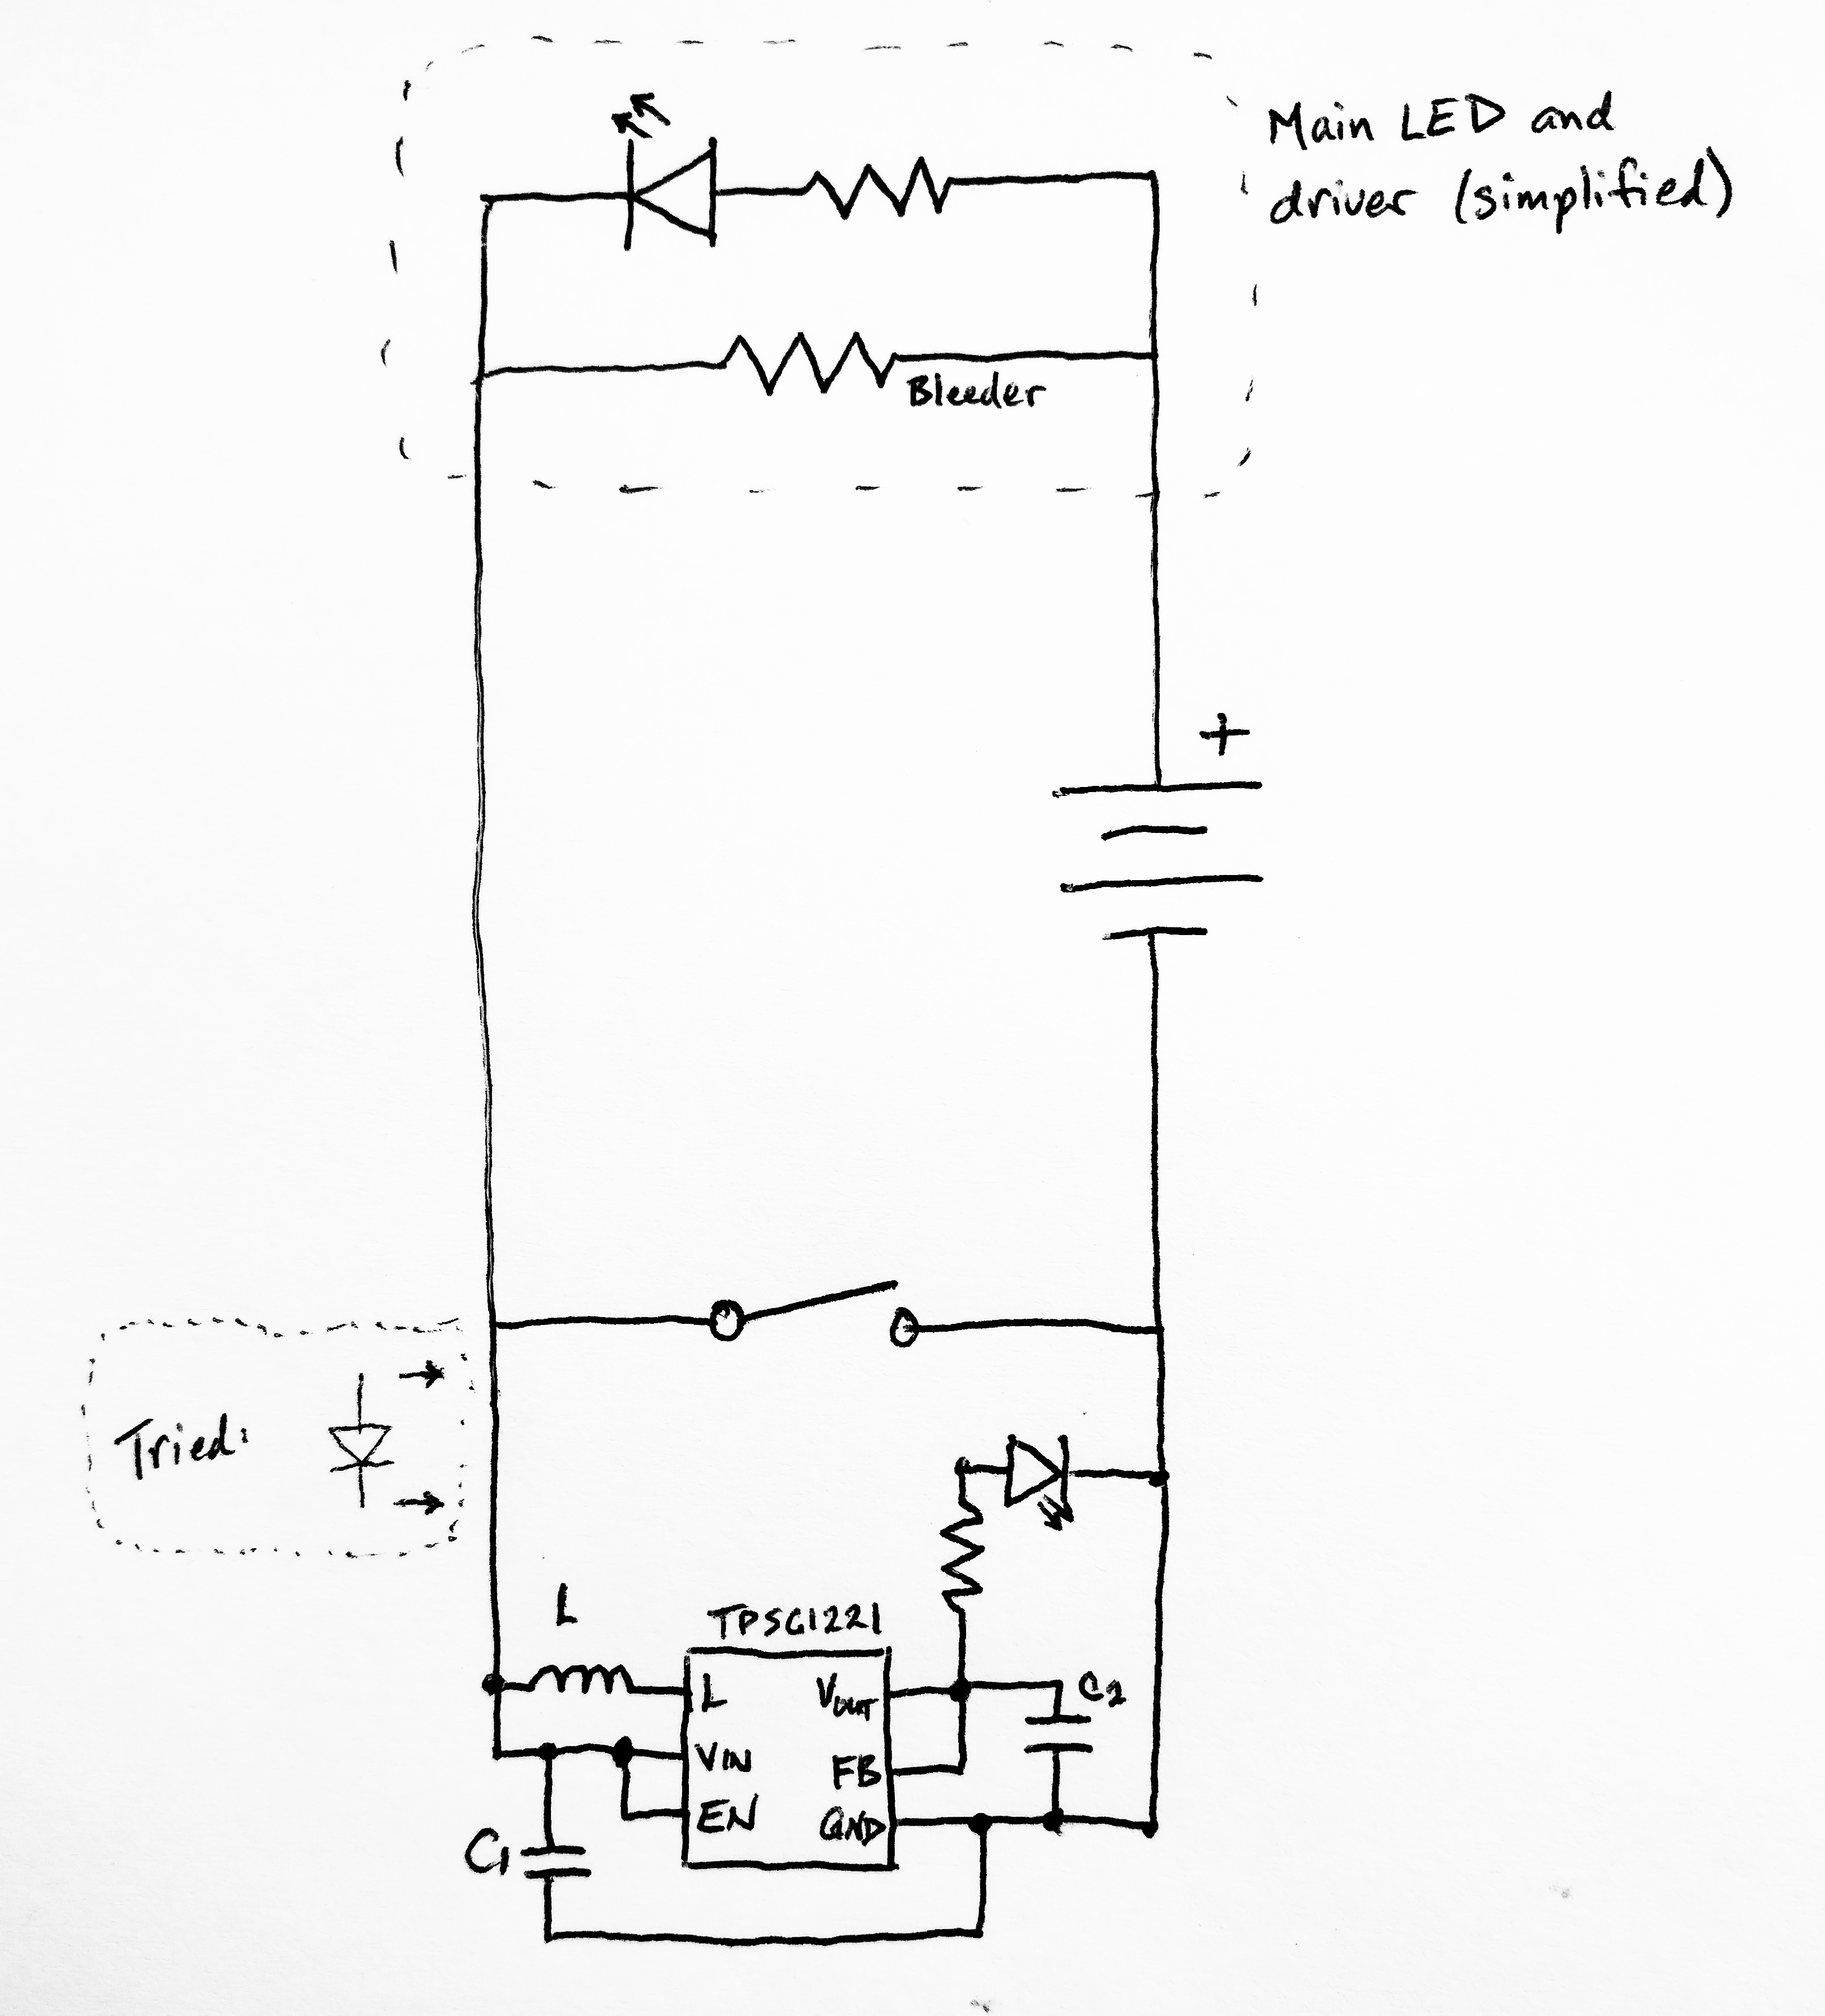 Main LED and
driver (simplified)
Bleeder
+
Tried:
L
TPS61221
L
VOUT
C2
VIN
FB
EN
GND
C1